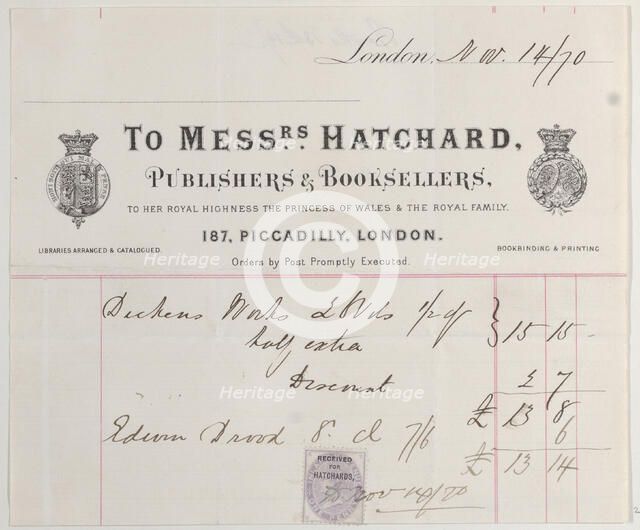 London, Nov. 14/70
TO MESSRS. HATCHARD,
PUBLISHERS & BOOKSELLERS,
TO HER ROYAL HIGHNESS THE PRINCESS OF WALES & THE ROYAL FAMILY.
187, PICCADILLY, LONDON.
LIBRARIES ARRANGED & CATALOGUED.
BOOKBINDING & PRINTING
Orders by Post Promptly Executed.
Dickens Works Vols 1/2 cf } 15 15
half extra
Discount 2 7
£ 13 8
Edwin Drood 8. cl 7/6 6
£ 13 14
RECEIVED
FOR
HATCHARDS,
Nov 14/70
Heritage
Heritage
Heritage
Heritage
Heritage
Heritage